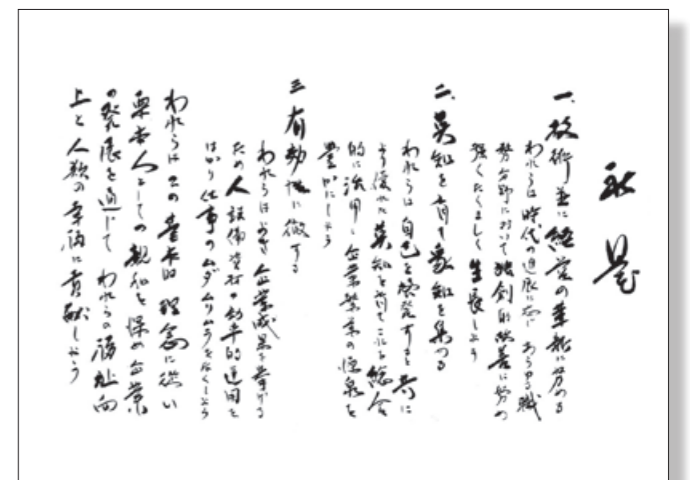 社是
一、技術並に経営の革新に努める
われらは時代の進展に応じ あらゆる職
務分野において独創的改善に努め
強くたくましく生長しよう
二、英知を育て衆知を集める
われらは自己を啓発すると共に
より優れた英知を育てこれを総合
的に活用し企業繁栄の源泉を
豊かにしよう
三 有効性に徹する
われらはよき企業成果を挙げる
ため人設備資材の効率的運用を
はかり仕事のムダムリムラをなくしよう
われらはこの基本的理念に従い
栗本人としての親和を深め企業
の発展を通じてわれらの福祉向
上と人類の幸福に貢献しよう